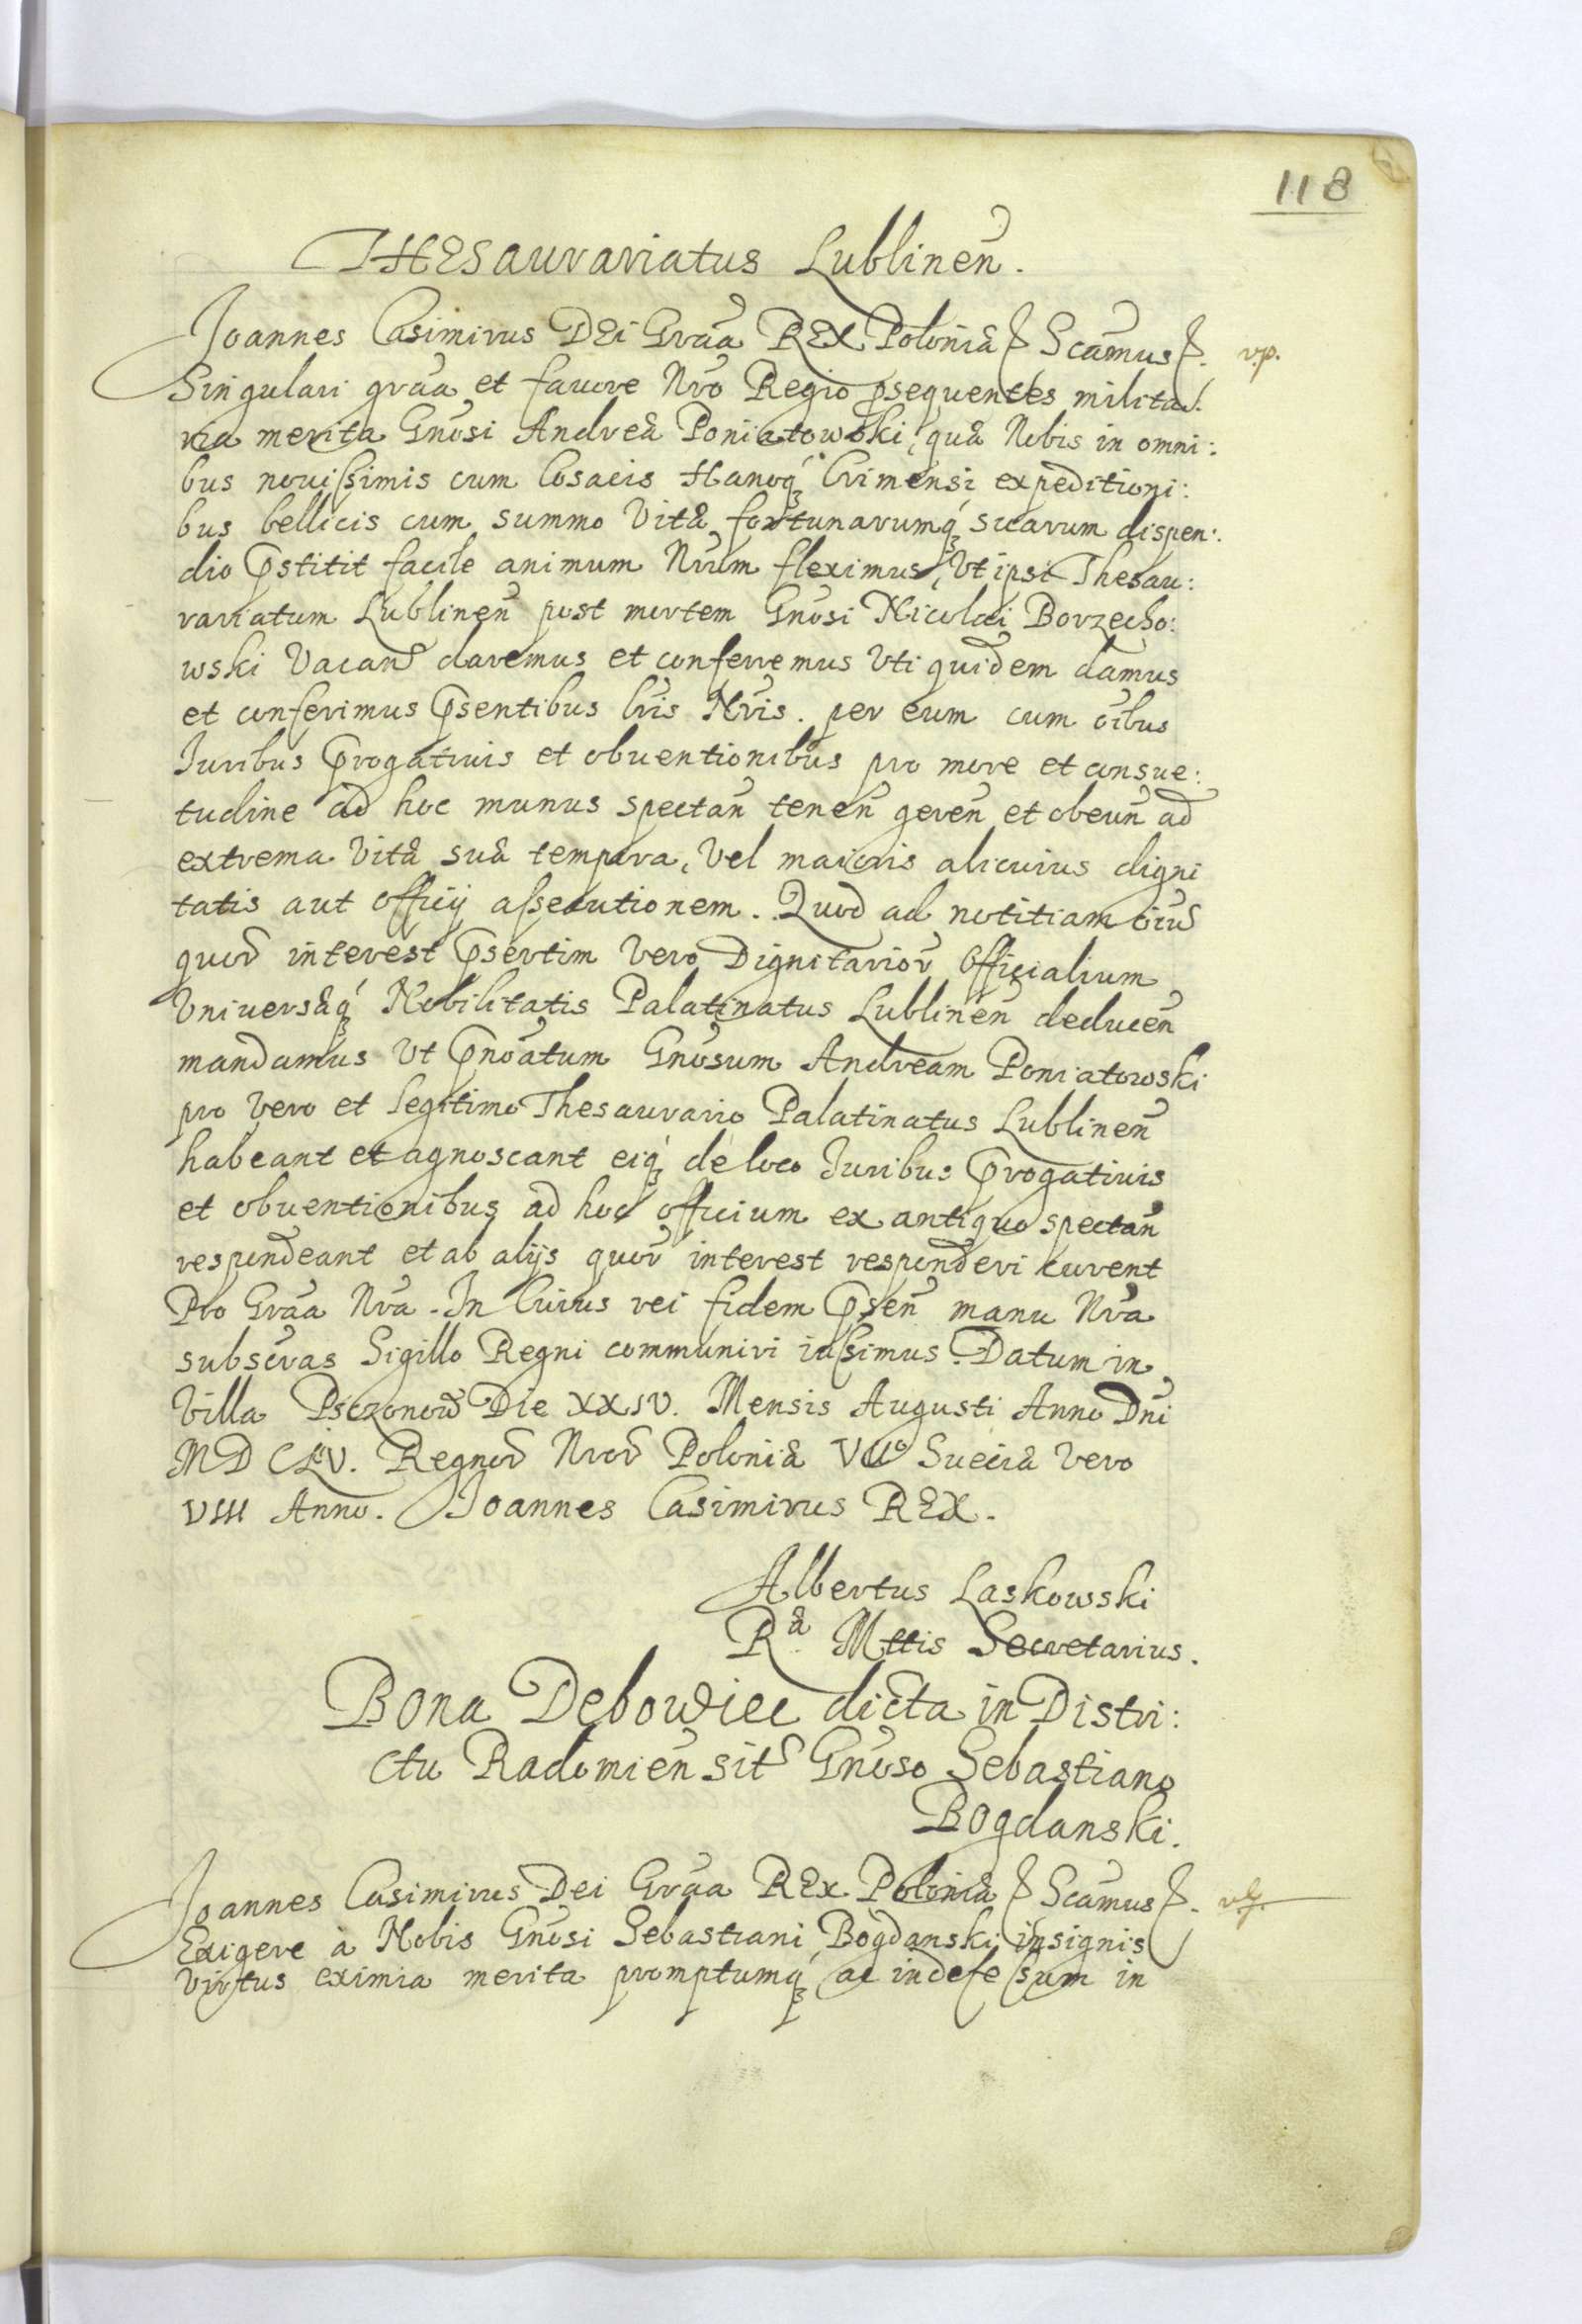 118
THESauvaviatus Lublinen̄.
Joannes Casimirus DEi Grãa REX Poloniæ & Scãmus &. v.p.
Singulari grãa et favore Nrõ Regio psequentes milita:
ria merita Gnõsi Andreæ Poniatowski, quæ Nobis in omni:
bus novissimis cum Cosacis Hanoq́ʒ Crimensi expeditioni:
bus bellicis cum summo Vitæ fortunarumq́ʒ suarum dispen:
dio pstitit facile animum Nrũm fleximus, Vt ipsi Thesau:
rariatum Lublinen̄ post mortem Gnõsi Nicolai Borzecho:
wski Vacan̄ daremus et conferremus Vti quidem damus
et conferimus psentibus lrĩs Nrĩs. per eum cum oĩbus
Iuribus progativis et obventionibus pro more et consue:
tudine ad hoc munus spectan̄ tenen̄ geren̄ et obeun̄ ad
extrema Vitæ suæ tempora, Vel maioris alicuius digni
tatis aut officij assecutionem. Quod ad notitiam oiũ
quor̃ interest psertim Vero Dignitarior̃ Officialium
Vniversæq́ʒ Nobilitatis Palatinatus Lublinen̄ deducen̄
mandamus Vt pnoãtum Gnõsum Andream Poniatowski
pro Vero et legitimo Thesaurario Palatinatus Lublinen̄
habeant et agnoscant eiq́ʒ de loco Iuribus progativis
et obventionibus ad hoc officium ex antiquo spectan̄
respondeant et ab alijs quor̃ interest responderi curent
Pro Grãa Nrã. In Cuius rei fidem psen̄ manu Nrã
subscras Sigillo Regni communiri iussimus. Datum in
Villa Psczonow Die XXIV. Mensis Augusti Anno Dnĩ
MDCLV. Regnor̃ Nror̃ Poloniæ VIIo Sueciæ Vero
VIII Anno. Joannes Casimirus REX.
Albertus Laskowski
Ræ Mttis Secretarius.
Bona Debowiec dicta in Distri:
ctu Radomien̄ sit̃ Gnõso Sebastiano
Bogdanski.
Joannes Casimirus Dei Grãa REx Poloniæ & Scãmus &.
Exigere à Nobis Gnõsi Sebastiani Bogdanski insignis
Virtus eximia merita promptumq́ʒ ac indefessum in